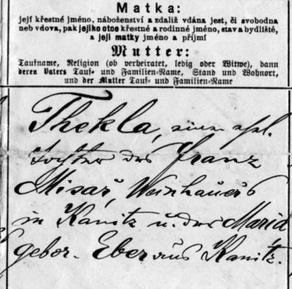 Matka:
její křestné jméno, náboženství a zdaliž vdána jest, či svobodna
neb vdova, pak jejího otce křestné a rodinné jméno, stav a bydliště,
a její matky jméno a příjmí
Mutter:
Taufname, Religion (ob verheiratet, ledig oder Witwe), dann
deren Vaters Tauf- und Familien-Name, Stand und Wohnort,
und der Mutter Tauf- und Familien-Name
Thekla, eine ehl.
Tochter des Franz
Misař, Weinhauers
in Kanitz u. der Maria
gebor. Eber aus Kanitz.